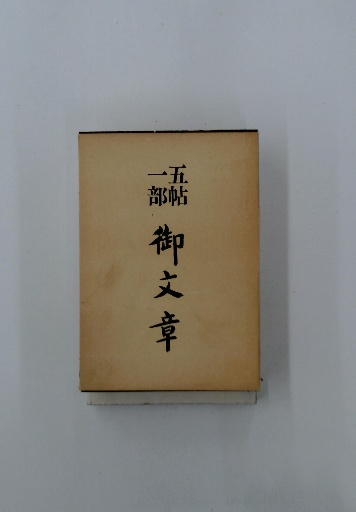 五帖
一部
御文章